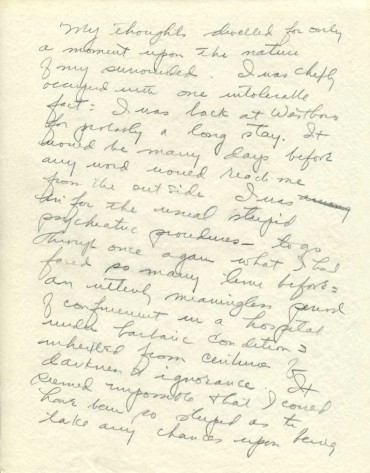 My thoughts dwelled for only
a moment upon the nature
of my surrounded. I was chiefly
occupied with one intolerable
fact: I was back at Westboro
for probably a long stay. It
would be many days before
any word would reach me
from the outside. I was
in for the usual stupid
psychiatric procedures – to go
through once again what I had
faced so many times before =
an utterly meaningless period
of confinement in a hospital
under barbaric conditions
inherited from centuries of
darkness & ignorance. It
seemed impossible that I could
have been so stupid as to
take any chances upon being